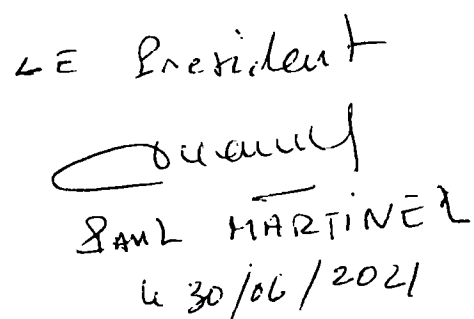 LE President
PAUL MARTINEZ
le 30/06/2021